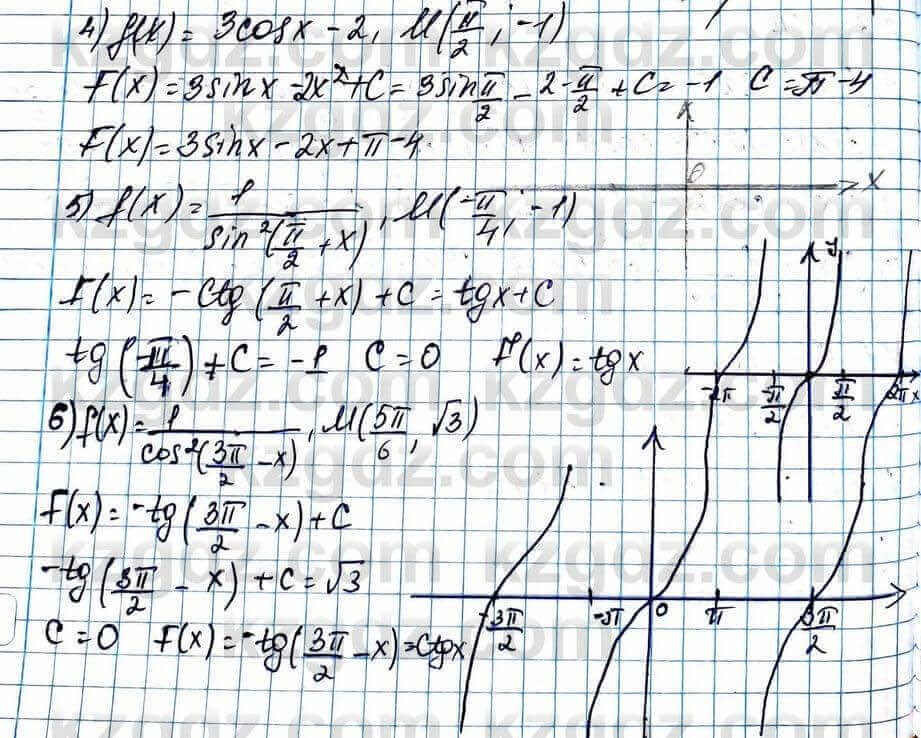 4) f(x) = 3cosx - 2, M(π/2; -1)
F(x) = 3sinx - 2x² + C = 3sin π/2 - 2·π/2 + C = -1 C = π - 4
F(x) = 3sinx - 2x + π - 4
5) f(x) = 1/sin²(π/2 + x), M(-π/4; -1)
F(x) = -ctg(π/2 + x) + C = tgx + C
tg(-π/4) + C = -1 C = 0 F(x) = tgx
6) f(x) = 1/cos²(3π/2 - x), M(5π/6, √3)
F(x) = -tg(3π/2 - x) + C
-tg(3π/2 - x) + C = √3
C = 0 F(x) = -tg(3π/2 - x) = Ctgx
0 x
y
-2π -π/2 π/2 2π x
-3π/2 -π 0 π 3π/2
kzgdz.com